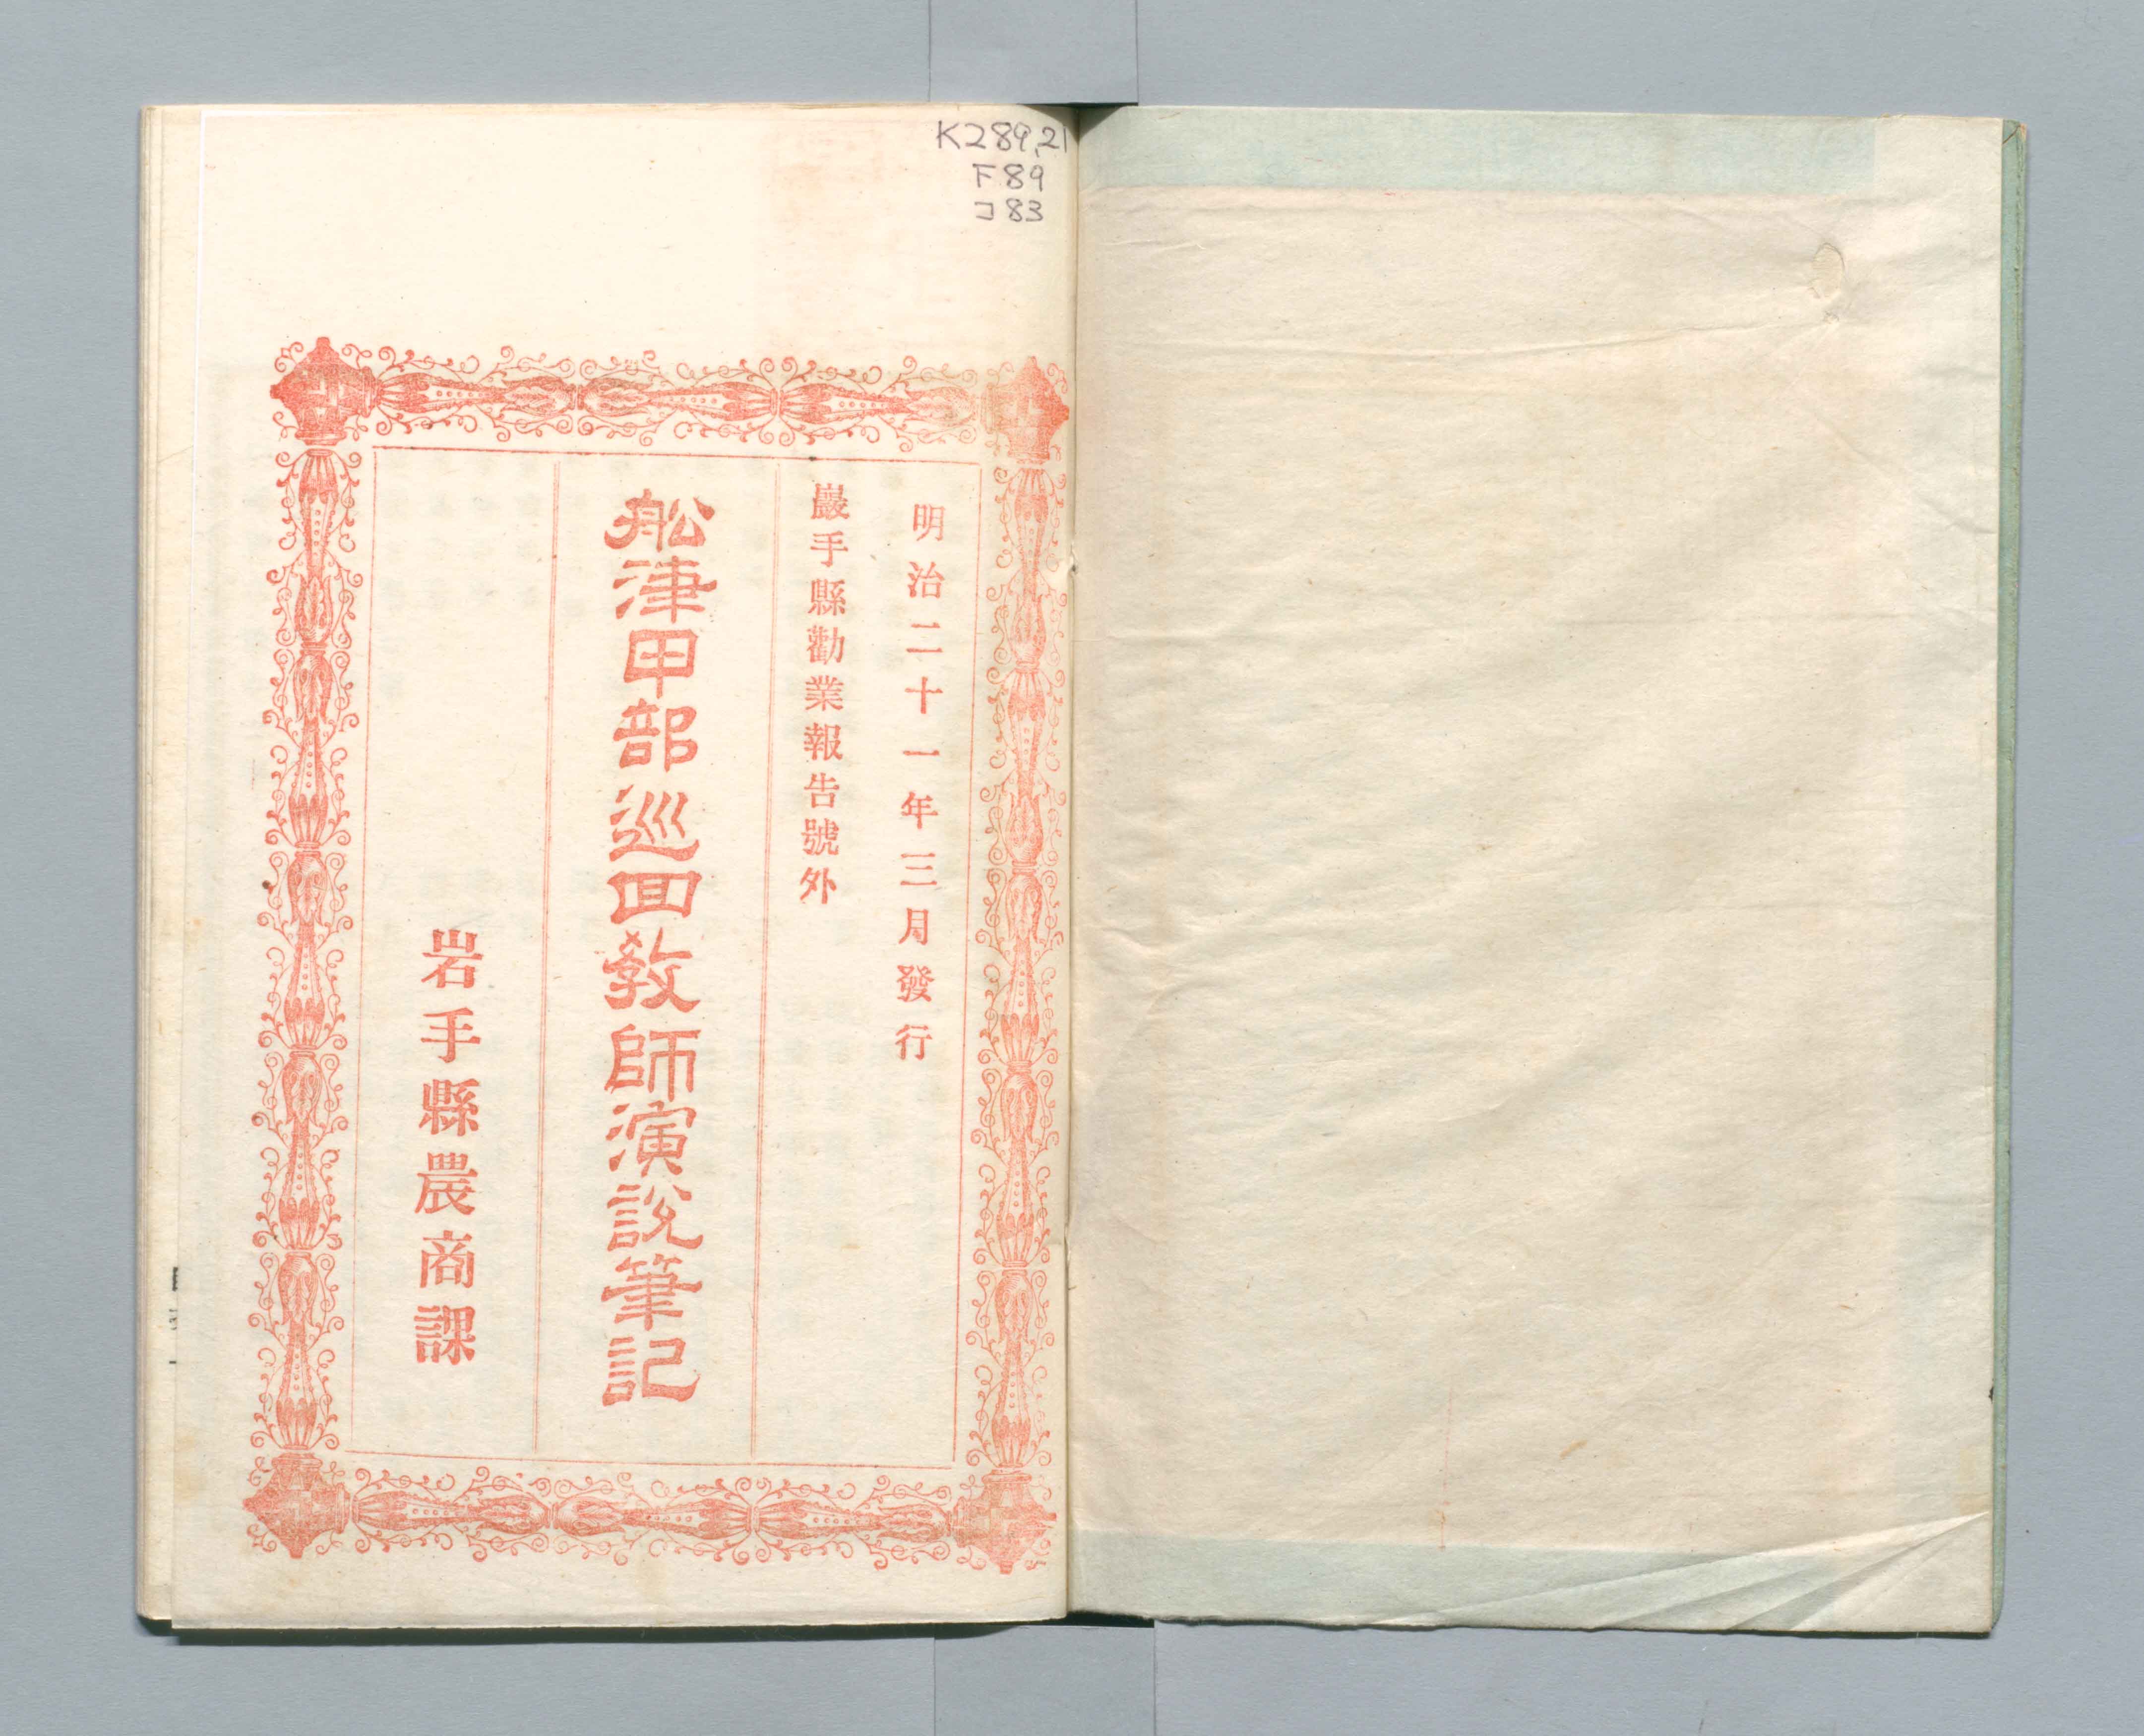 K289.21
F89
コ83
明治二十一年三月發行
巖手縣勸業報告號外
舩津甲部巡回敎師演説筆記
岩手縣農商課